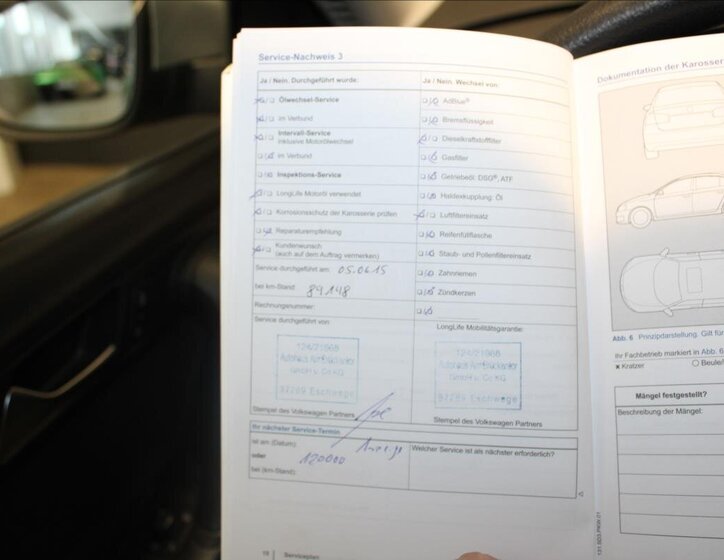 Service-Nachweis 3
Ja / Nein. Durchgeführt wurde:
Ölwechsel-Service
Im Verbund
Intervall-Service
inklusive Motorölwechsel
Im Verbund
Inspektions-Service
LongLife Motoröl verwendet
Korrosionsschutz der Karosserie prüfen
Reparaturempfehlung
Kundenwunsch
(auch auf dem Auftrag vermerken)
Service durchgeführt am: 05.06.15
bei km-Stand: 89.148
Rechnungsnummer:
Service durchgeführt von:
124/21968
GmbH u. Co KG
37269 Eschwege
Stempel des Volkswagen Partners
Ja / Nein. Wechsel von:
AdBlue®
Bremsflüssigkeit
Dieselkraftstofffilter
Gasfilter
Getriebeöl: DSG®, ATF
Haldexkupplung: Öl
Luftfiltereinsatz
Reifenfüllflasche
Staub- und Pollenfiltereinsatz
Zahnriemen
Zündkerzen
LongLife Mobilitätsgarantie:
124/21968
GmbH u. Co KG
37269 Eschwege
Stempel des Volkswagen Partners
Ihr nächster Service-Termin
ist am (Datum):
oder
120000
bei (km-Stand):
Welcher Service ist als nächster erforderlich?
18 Serviceplan
Dokumentation der Karosserie
Abb. 6 Prinzipdarstellung. Gilt für
Ihr Fachbetrieb markiert in Abb. 6
Kratzer
Beule/
Mängel festgestellt?
Beschreibung der Mängel: